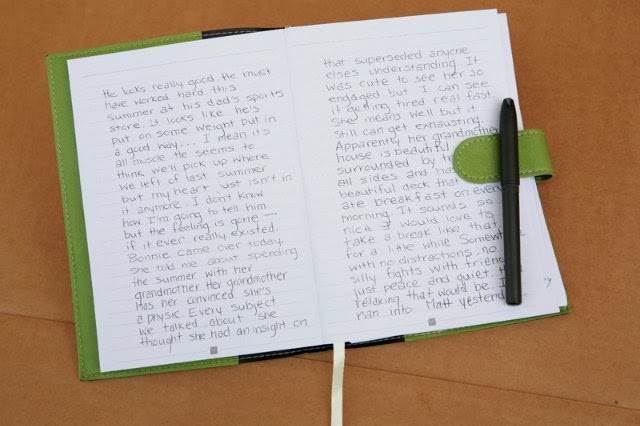 He looks really good. He must
have worked hard this
summer at his dad's sports
store. It looks like he's
put on some weight but in
a good way... I mean it's
all muscle. He seems to
think we'll pick up where
we left of last summer
but my heart just isn't in
it anymore. I don't know
how I'm going to tell him
but the feeling is gone —
if it ever really existed.
Bonnie came over today.
She told me about spending
the summer with her
grandmother. Her grandmother
has her convinced she's
a physic. Every subject
we talked about she
thought she had an insight on
that superseded anyone
elses understanding. It
was cute to see her so
engaged but I can see
it getting tired real fast.
She means well but it
still can get exhausting.
Apparently her grandmother
house is beautiful
surrounded by
all sides and
beautiful deck that
ate breakfast on every
morning. It sounds so
nice. I would love to
take a break like that
for a little while. Somewhere
with no distractions, no
silly fights with friends
just peace and quiet.
relaxing that would be. I
ran into Matt yesterday